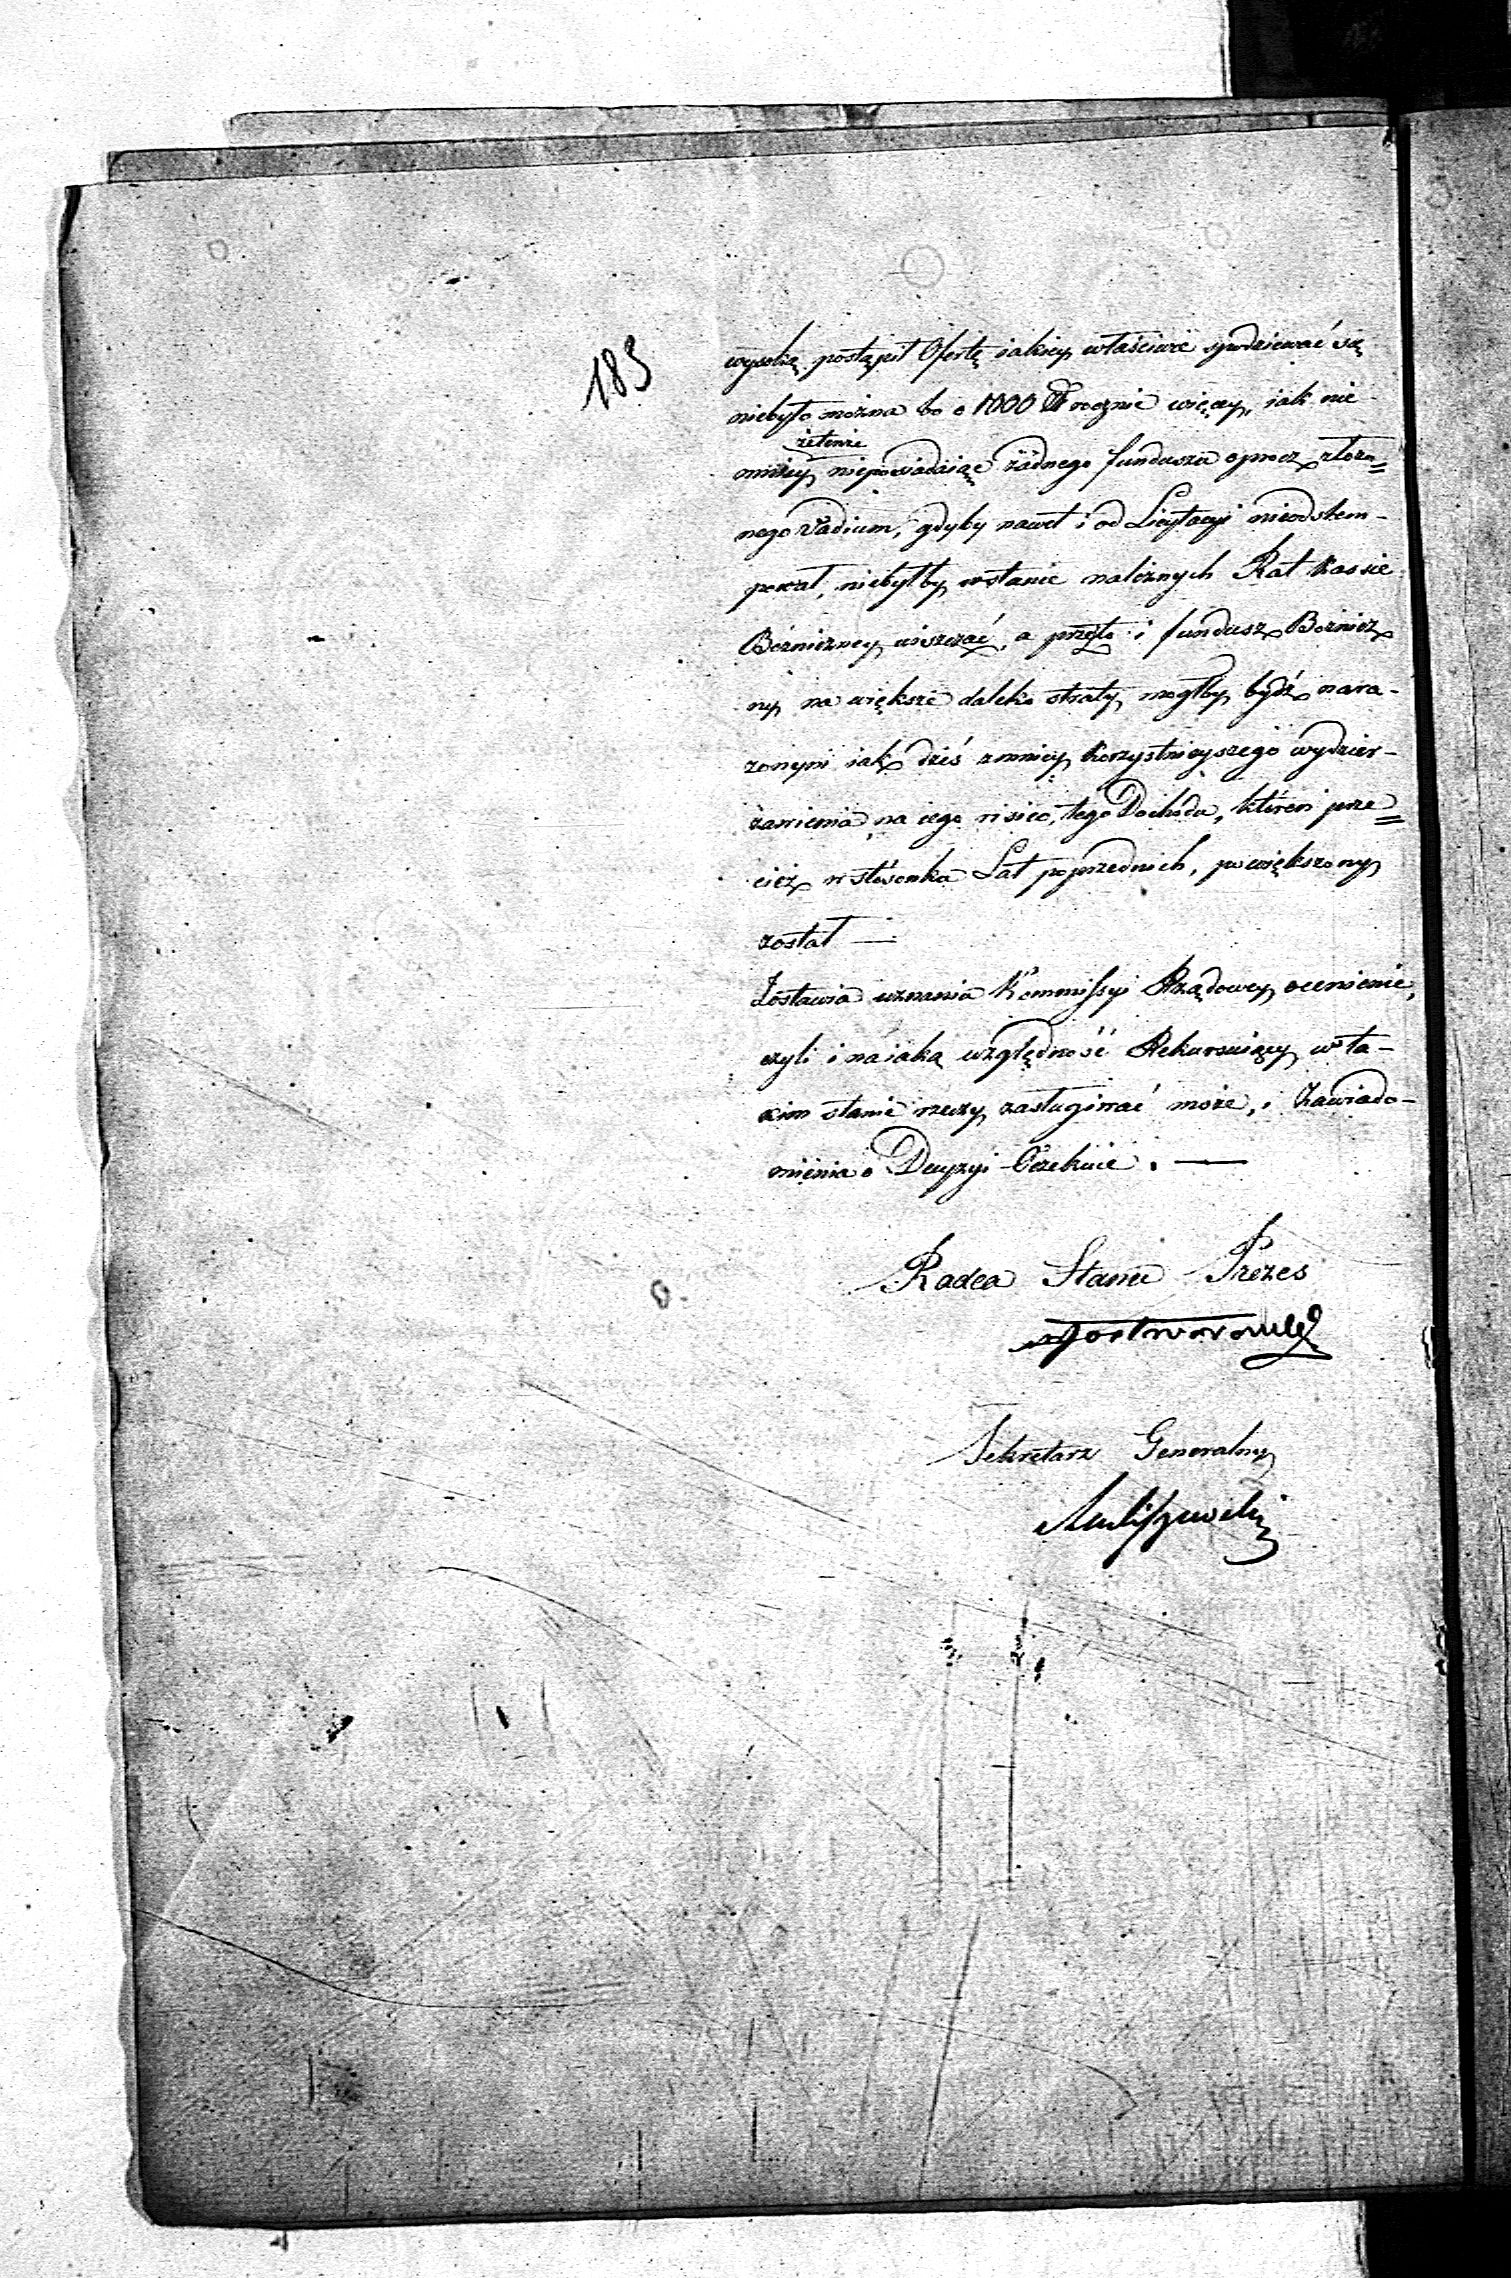 183
wysoką postąpił Ofertę iakiey właściwie spodziewać się
niebyło można bo o 1000 rocznie więcey, iak nie-
żetenże
mniey nieposiadaiąc żadnego funduszu oprocz złożo=
nego Vadium, gdyby nawet i od Licytacyi nieodstem-
pował, niebyłby wstanie należnych Rat Kassie
Bożniczney uiszczać, a przęto i fundusz Bożnicz
ny na większe daleko straty mogłby bydź nara-
żonym iak dziś zmniey korzystnieyszego wydzier-
żawienia na iego risico, tego Dochodu, któren prze=
cież w stosunku Lat poprzednich, powiększony
został —
Zostawia uznania Kommissyi Rządowey ocenienie,
czyli i na iaką względność Rekursuiący w ta-
kim stanie rzeczy zasługiwać może, i Zawiado-
mienia o Decyzyi Oczekuie. —
Radca Stanu Prezes
Sekretarz Generalny